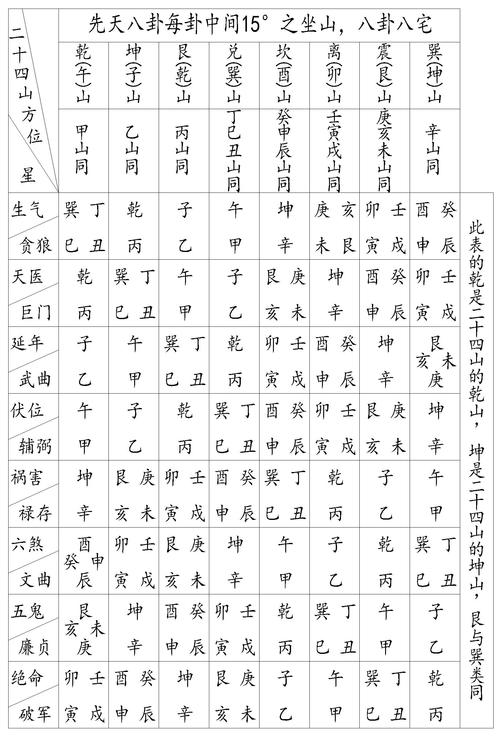 先天八卦每卦中间15°之坐山，八卦八宅
二十四山方位
星
乾(午)山 坤(子)山 艮(乾)山 兑(巽)山 坎(酉)山 离(卯)山 震(艮)山 巽(坤)山
甲山同 乙山同 丙山同 丁巳丑山同 癸申辰山同 壬寅戌山同 庚亥未山同 辛山同
生气 巽丁 乾 子 午 坤 庚亥 卯壬 酉癸
贪狼 巳丑 丙 乙 甲 辛 未艮 寅戌 申辰
天医 乾 巽丁 午 子 艮庚 坤 酉癸 卯壬
巨门 丙 巳丑 甲 乙 亥未 辛 申辰 寅戌
延年 子 午 巽丁 乾 卯壬 酉癸 坤 艮亥未
武曲 乙 甲 巳丑 丙 寅戌 申辰 辛 庚
伏位 午 子 乾 巽丁 酉癸 卯壬 艮庚 坤
辅弼 甲 乙 丙 巳丑 申辰 寅戌 亥未 辛
祸害 坤 艮庚 卯壬 酉癸 巽丁 乾 子 午
禄存 辛 亥未 寅戌 申辰 巳丑 丙 乙 甲
六煞 酉癸申 卯壬 艮庚 坤 午 子 乾 巽丁
文曲 辰 寅戌 亥未 辛 甲 乙 丙 巳丑
五鬼 艮亥未 坤 酉癸 卯壬 乾 巽丁 午 子
廉贞 庚 辛 申辰 寅戌 丙 巳丑 甲 乙
绝命 卯壬 酉癸 坤 艮庚 子 午 巽丁 乾
破军 寅戌 申辰 辛 亥未 乙 甲 巳丑 丙
此表的乾是二十四山的乾山，坤是二十四山的坤山，艮与巽类同